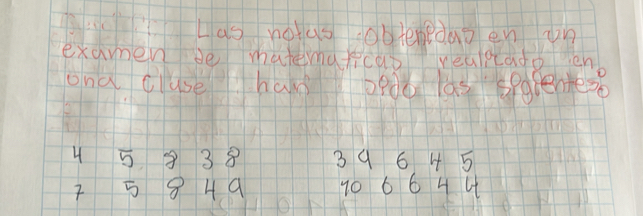 Las notas obtenidas en un
examen de matematicas realizado en
una clase han sido las siguientes:
4 5 8 3 8 3 9 6 4 5
7 5 8 4 9 10 6 6 4 4